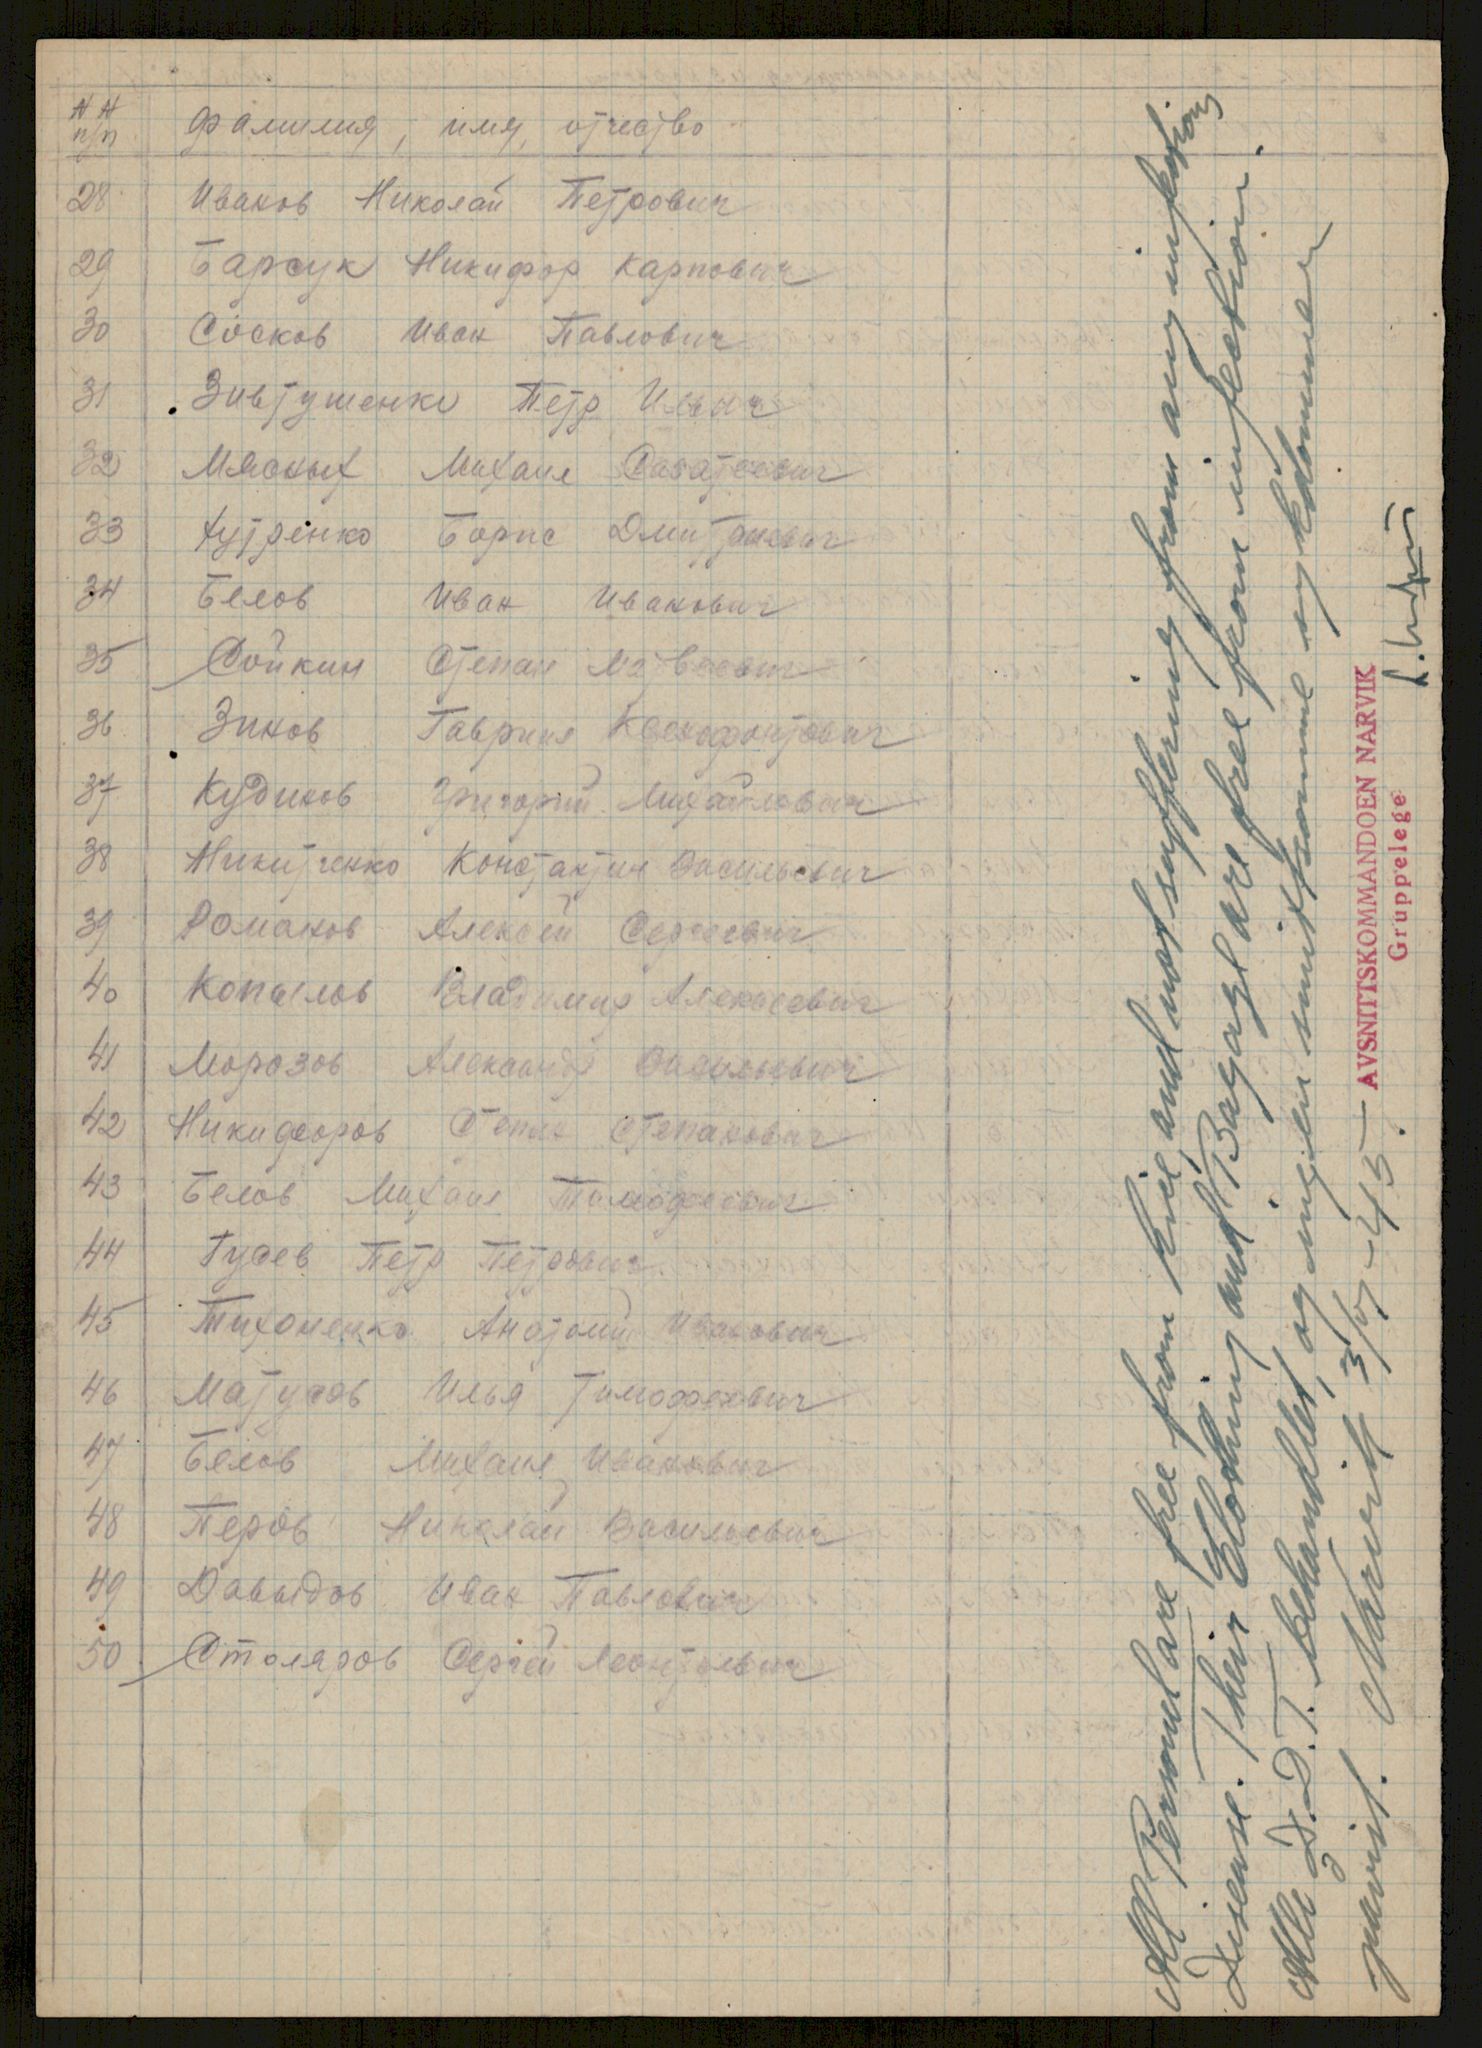 NN п/п фамилия, имя, отчество
28 Иванов Николай Петрович
29 Барсук Никифор Карпович
30 Сосков Иван Павлович
31 Зивтушенко Петр Ильич
32 Мясных Михаил Саватеевич
33 Борис Дмитриевич
34 Белов Иван Иванович
35 Сойкин Степан Матвеевич
36 Зиков Гаврил Ксенофонтович
37 Кудинов Григорий Михайлович
38 Никитченко Константин Васильевич
39 Романов Алексей Сергеевич
40 Копылов Владимир Алексеевич
41 Морозов Александр Васильевич
42 Никифоров Степан Степанович
43 Белов Михаил Тимофеевич
44 Гусев Петр Петрович
45 Тихоненко Анатолий Иванович
46 Матусов Илья Тимофеевич
47 Белов Михаил Иванович
48 Перов Николай Васильевич
49 Давыдов Иван Павлович
50 Столяров Сергей Леонтьевич
All Personel are free from lice, and not suffering from any infectious
Disease. Their Clothing and Bagage are free from infection.
Alle D.D.T. behandlet, og ingen smitsomme sykdommer
påvist. Narvik 3/VI-45
AVSNITTSKOMMANDOEN NARVIK
Gruppelege